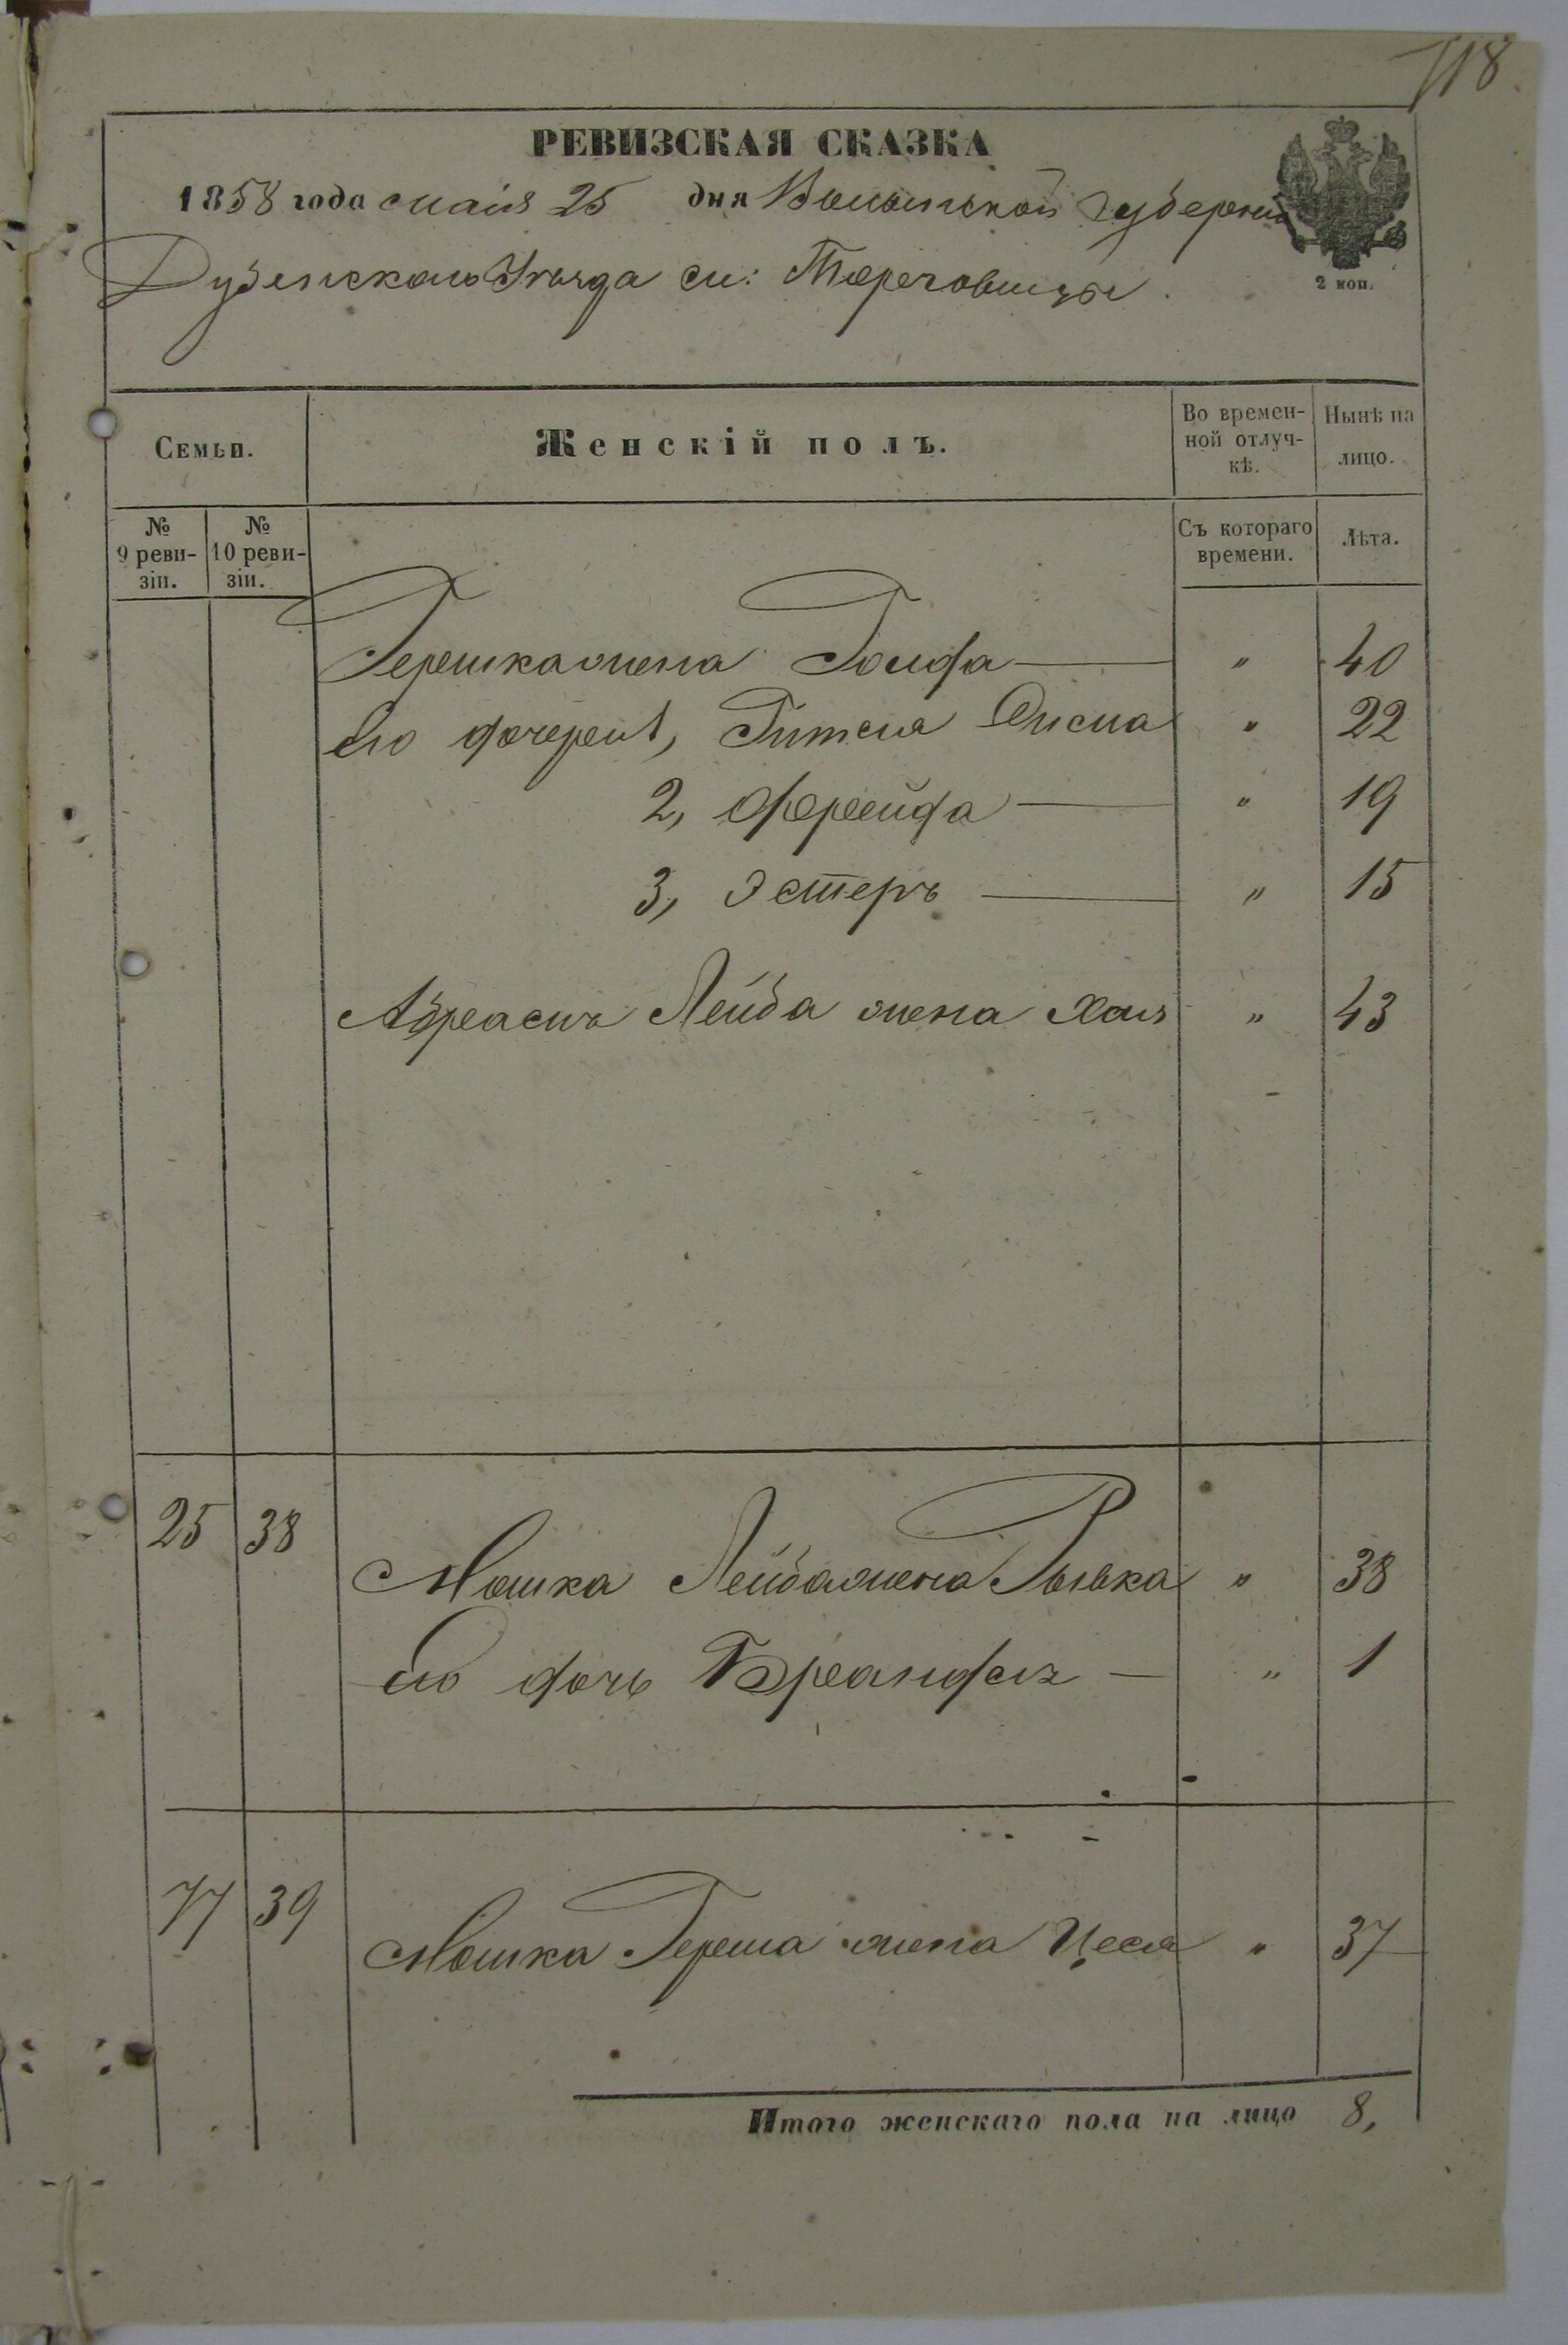 118.
РЕВИЗСКАЯ СКАЗКА
1858 года маія 25 дня Волынской Губерніи
Дубенскаго Уѣзда м: Торговицы.
2 коп.
Семьи. Женскій полъ. Во времен-ной отлуч-кѣ. Нынѣ на лицо.
№ 9 реви-зіи. № 10 реви-зіи. Съ котораго времени. Лѣта.
Гершка жена Голда — " 40
Его дочери 1, Гитля " 22
2, Фрейда — " 19
3, Эстеръ — " 15
Абрамъ Лейба жена Хая " 43
25 38 Мошка Лейба жена Рывка " 38
Его дочь Брандля — " 1
77 39 Мошка Герша жена Цеся " 37
Итого женскаго пола на лицо 8,